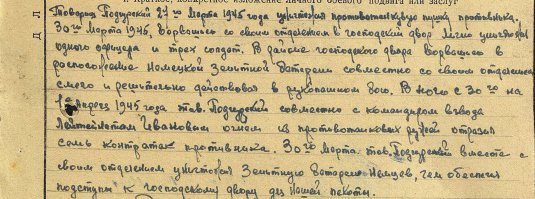 I. Краткое, конкретное изложение личного боевого подвига или заслуг
Товарищ Подгурский 27го Марта 1945 года уничтожил противотанковую пушку противника.
30го Марта 1945, ворвавшись со своим отделением в господский двор уничтожил
одного офицера и трех солдат. В районе господского двора ворвавшись в
росположение Немецкой Зенитной Батереи совместно со своим отделением
смело и решительно действовал в рукопашном бою. В ночь с 30го на
1945 года тов. Подгурский совместно с командиром взвода
Лейтейнетом Ивановым огнем из противотанковых ружей отразил
семь контратак противника. 30го Марта тов. Подгурский вместе с
своим отделением уничтожил Зенитную Батерею Немцев, чем обеспечил
подступы к господскому двору для нашей пехоты.